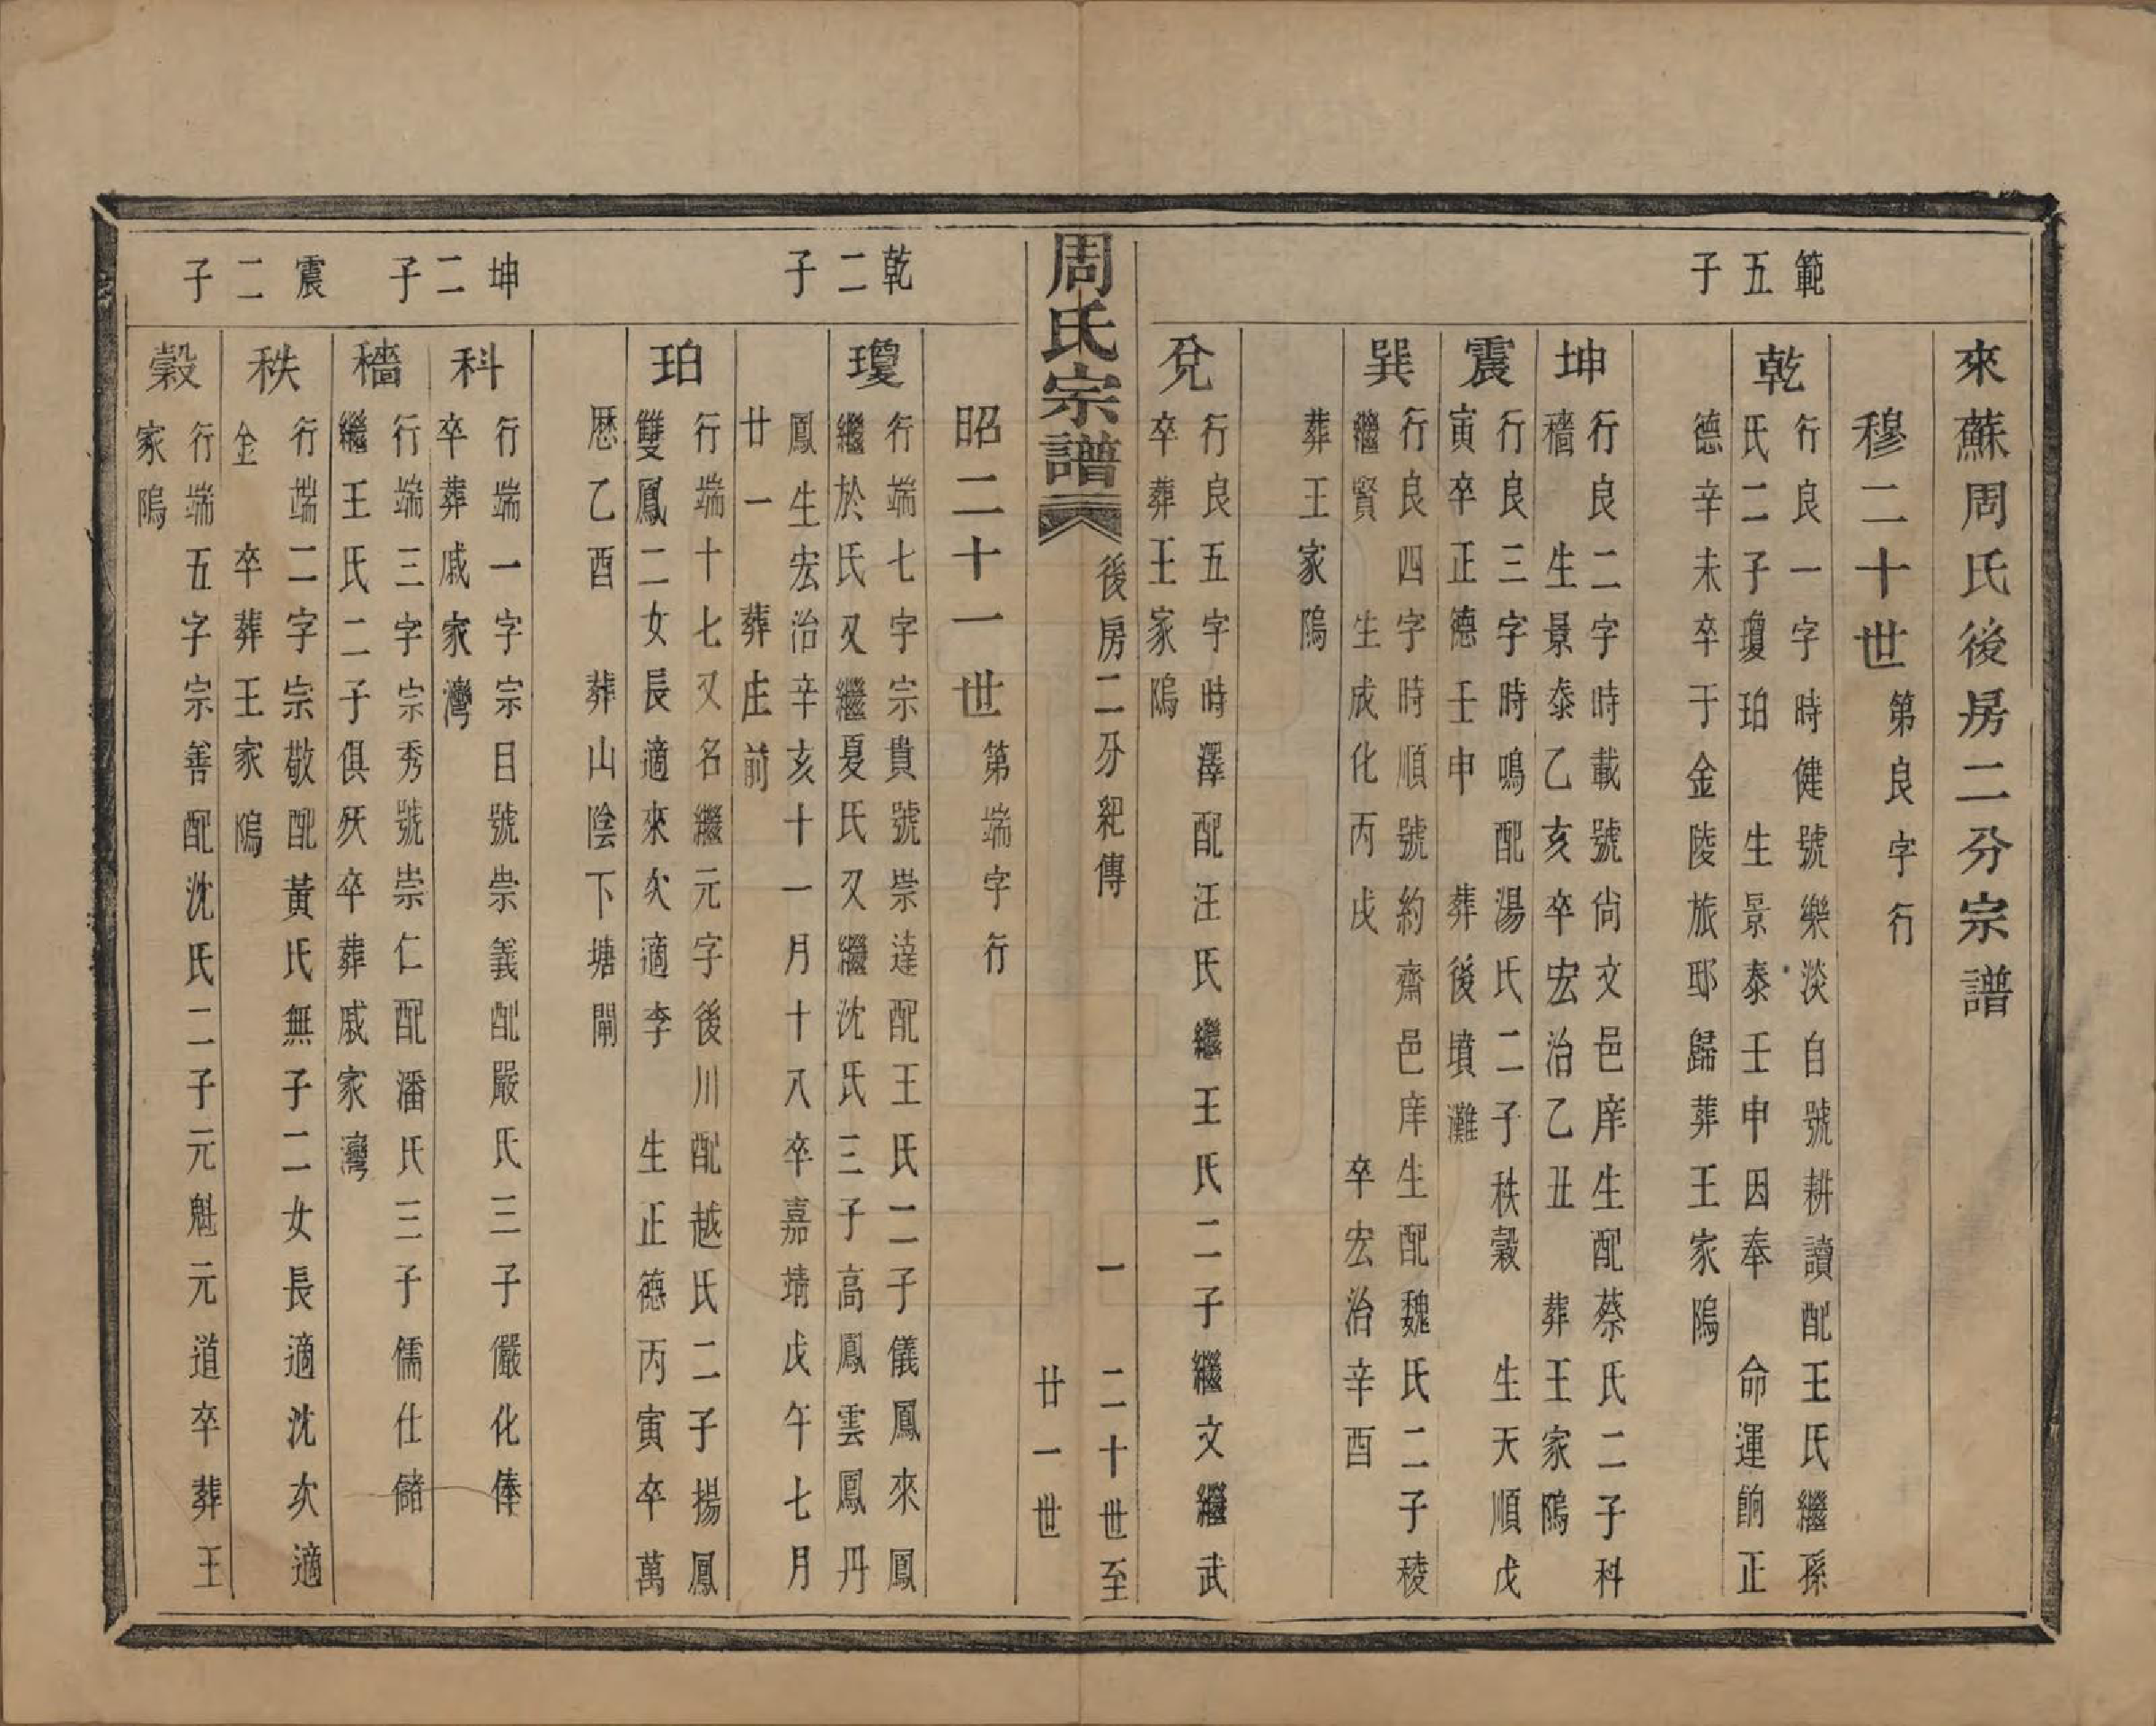 來蘇周氏後房二分宗譜
穆二十世第良字行
範五子
乾
行良一字時健號樂淡自號耕讀配王氏繼孫
氏二子瓊珀 生景泰壬申因奉 命運餉正
德辛未卒于金陵旅邸歸葬王家隖
坤
行良二字時載號尙文邑庠生配蔡氏二子科
穡 生景泰乙亥卒宏治乙丑 葬王家隖
震
行良三字時鳴配湯氏二子秩穀 生天順戊
寅卒正德壬申 葬後墳灘
巽
行良四字時順號約齋邑庠生配魏氏二子稜
繼賢 生成化丙戌 卒宏治辛酉
葬王家隖
兌
行良五字時澤配汪氏繼王氏二子繼文繼武
卒葬王家隖
周氏宗譜
後房二分紀傳 一 二十世至
廿一世
昭二十一世第端字行
乾二子
瓊
行端七字宗貴號崇達配王氏二子儀鳳來鳳
繼於氏又繼夏氏又繼沈氏三子高鳳雲鳳丹
鳳生宏治辛亥十一月十八卒嘉靖戊午七月
廿一 葬庄前
珀
行端十七又名繼元字後川配越氏二子揚鳳
雙鳳二女長適來次適李 生正德丙寅卒萬
歷乙酉 葬山陰下塘閘
坤二子
科
行端一字宗目號崇義配嚴氏三子儼化俸
卒葬戚家灣
穡
行端三字宗秀號崇仁配潘氏三子儒仕儲
繼王氏二子俱殀卒葬戚家灣
震二子
秩
行端二字宗敬配黃氏無子二女長適沈次適
金 卒葬王家隖
穀
行端五字宗善配沈氏二子元魁元道卒葬王
家隖